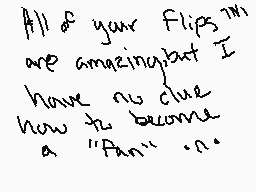 All of your flips™
are amazing, but I
have no clue
how to become
a "Fan" .n.